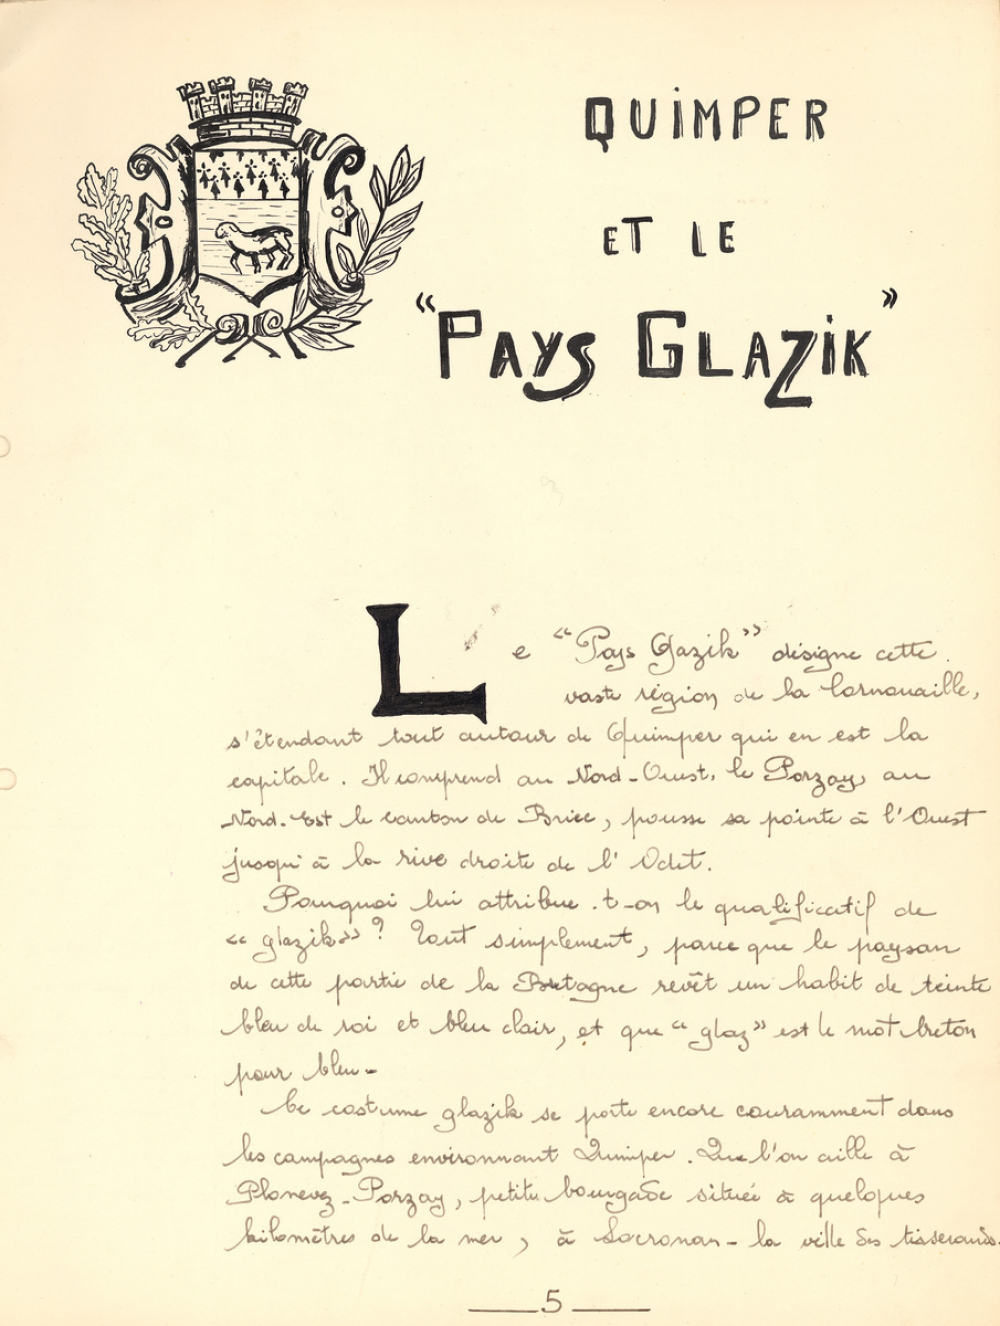 QUIMPER
ET LE
"PAYS GLAZIK"
Le "Pays Glazik" désigne cette
vaste région de la Cornouaille,
s'étendant tout autour de Quimper qui en est la
capitale. Il comprend au Nord-Ouest, le Porzay, au
Nord-Est le canton de Briec, pousse sa pointe à l'Ouest
jusqu'à la rive droite de l'Odet.
Pourquoi lui attribue-t-on le qualificatif de
"glazik" ? Tout simplement, parce que le paysan
de cette partie de la Bretagne revêt un habit de teinte
bleu de roi et bleu clair, et que "glaz" est le mot breton
pour bleu-
Le costume glazik se porte encore couramment dans
les campagnes environnant Quimper. Que l'on aille à
Plonevez-Porzay, petite bourgade située à quelques
kilomètres de la mer, à Locronan - la ville des tisserands.
5